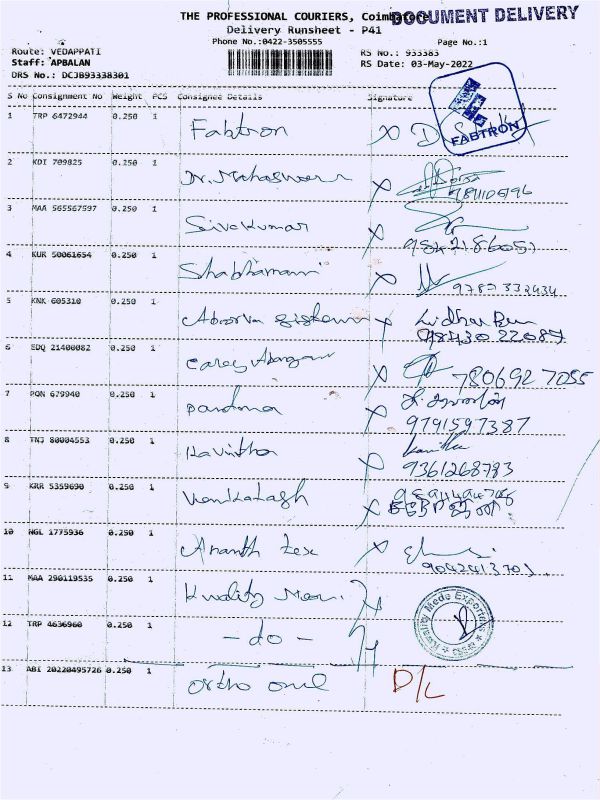 THE PROFESSIONAL COURIERS, Coimbatore
DOCUMENT DELIVERY
Delivery Runsheet - P41
Phone No.:0422-3505555 Page No.:1
Route: VEDAPPATI RS No.: 933383
Staff: APBALAN RS Date: 03-May-2022
DRS No.: DCJB93338301
S No Consignment No Weight PCS Consignee Details Signature
1 TRP 6472944 0.250 1 Fabtron X
FABTRON
2 KDI 709825 0.250 1 X
3 MAA 565567597 0.250 1 Sivakumar X
4 KUR 50061654 0.250 1 X 9787332434
5 KNK 605310 0.250 1 X
9843022087
6 EDQ 21400082 0.250 1 X 7806927055
7 PON 679940 0.250 1 X
9791597387
8 TNJ 80004553 0.250 1 Kavitha X
9361268783
9 KRR 5359690 0.250 1 Venkatash X
10 NGL 1775936 0.250 1 Ananth Tex X
9042413701
11 MAA 290119535 0.250 1 Kwality
Kwality Mede Exporters
12 TRP 4636960 0.250 1 - do -
13 ABI 20220495726 0.250 1 Ortho one D/L